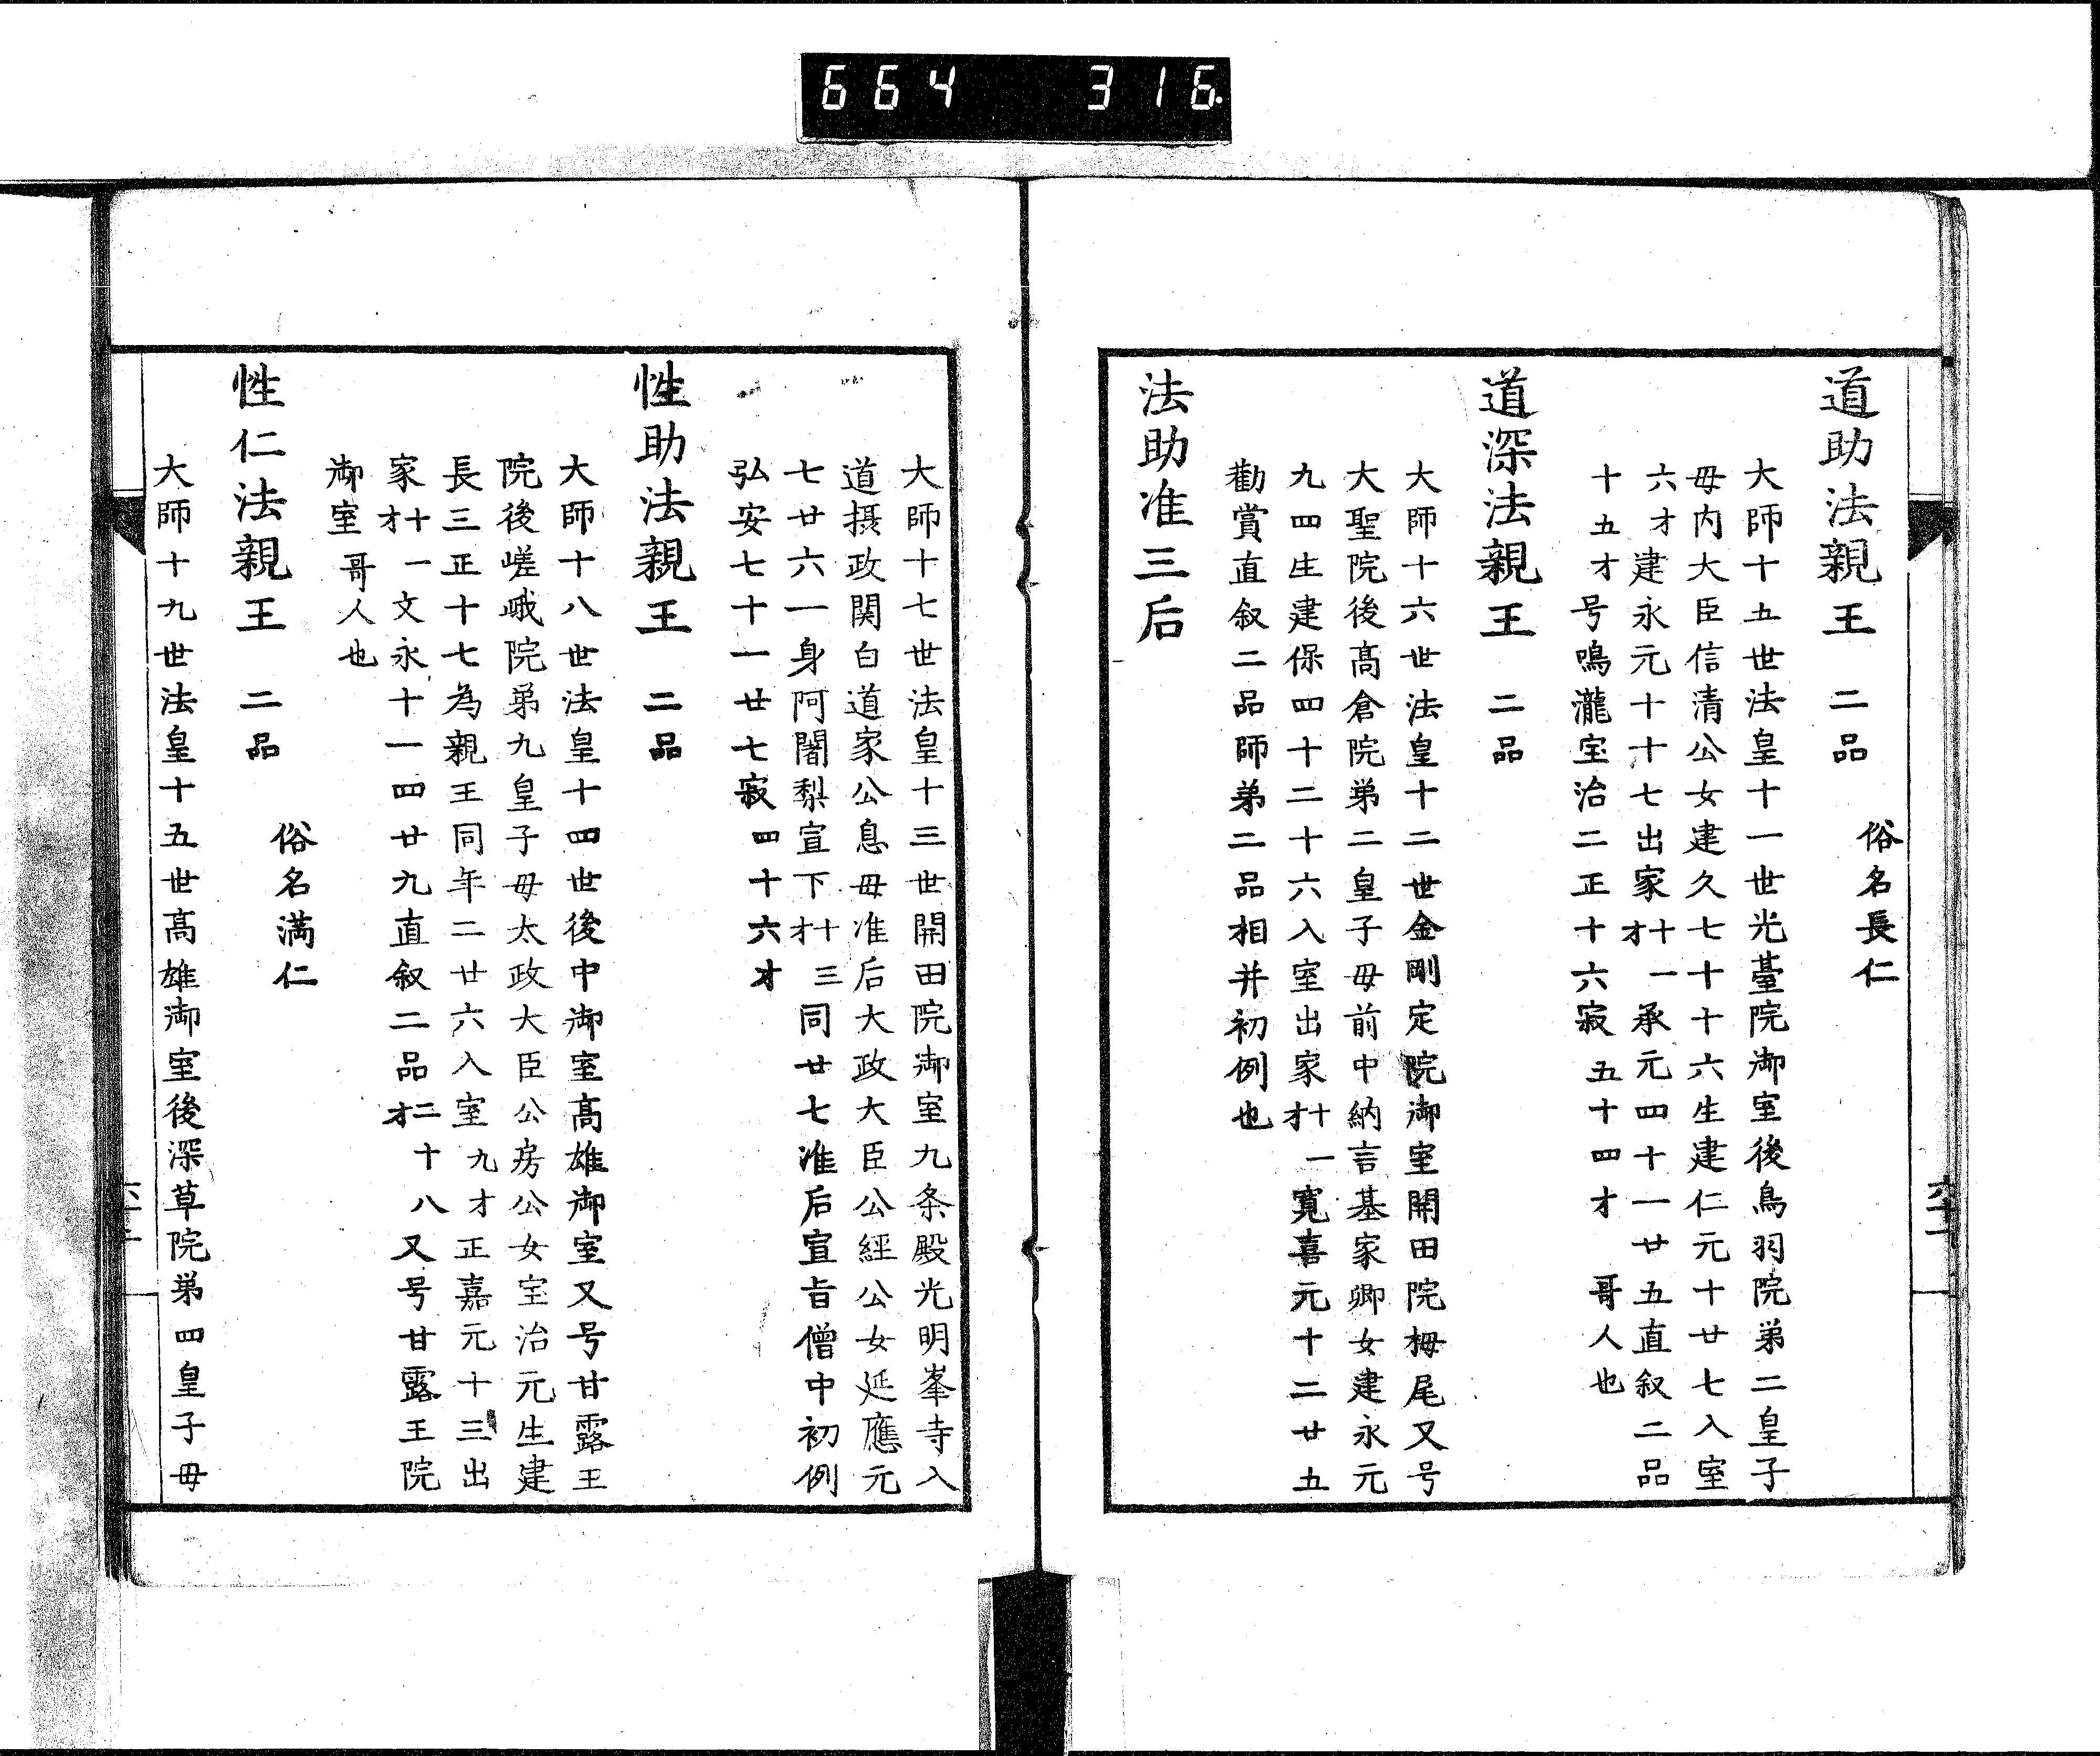 664 316.
道助法親王 二品 俗名長仁
大師十五世法皇十一世光臺院御室後鳥羽院弟二皇子
母内大臣信清公女建久七十十六生建仁元十廿七入室
六才建永元十十七出家十一才承元四十一廿五直叙二品
十五才号鳴瀧宝治二正十六寂五十四才 哥人也
道深法親王 二品
大師十六世法皇十二世金剛定院御室開田院栂尾又号
大聖院後髙倉院弟二皇子母前中納言基家卿女建永元
九四生建保四十二十六入室出家十一才寛喜元十二廿五
勸賞直叙二品師弟二品相并初例也
法助准三后
大師十七世法皇十三世開田院御室九条殿光明峯寺入
道摂政関白道家公息母准后大政大臣公經公女延應元
七廿六一身阿闍梨宣下十三才同廿七准后宣旨僧中初例
弘安七十一廿七寂四十六才
性助法親王 二品
大師十八世法皇十四世後中御室髙雄御室又号甘露王
院後嵯峨院弟九皇子母太政大臣公房公女宝治元生建
長三正十七為親王同年二廿六入室九才正嘉元十三出
家十一才文永十一四廿九直叙二品二十八才又号甘露王院
御室 哥人也
性仁法親王 二品 俗名満仁
大師十九世法皇十五世髙雄御室後深草院弟四皇子母